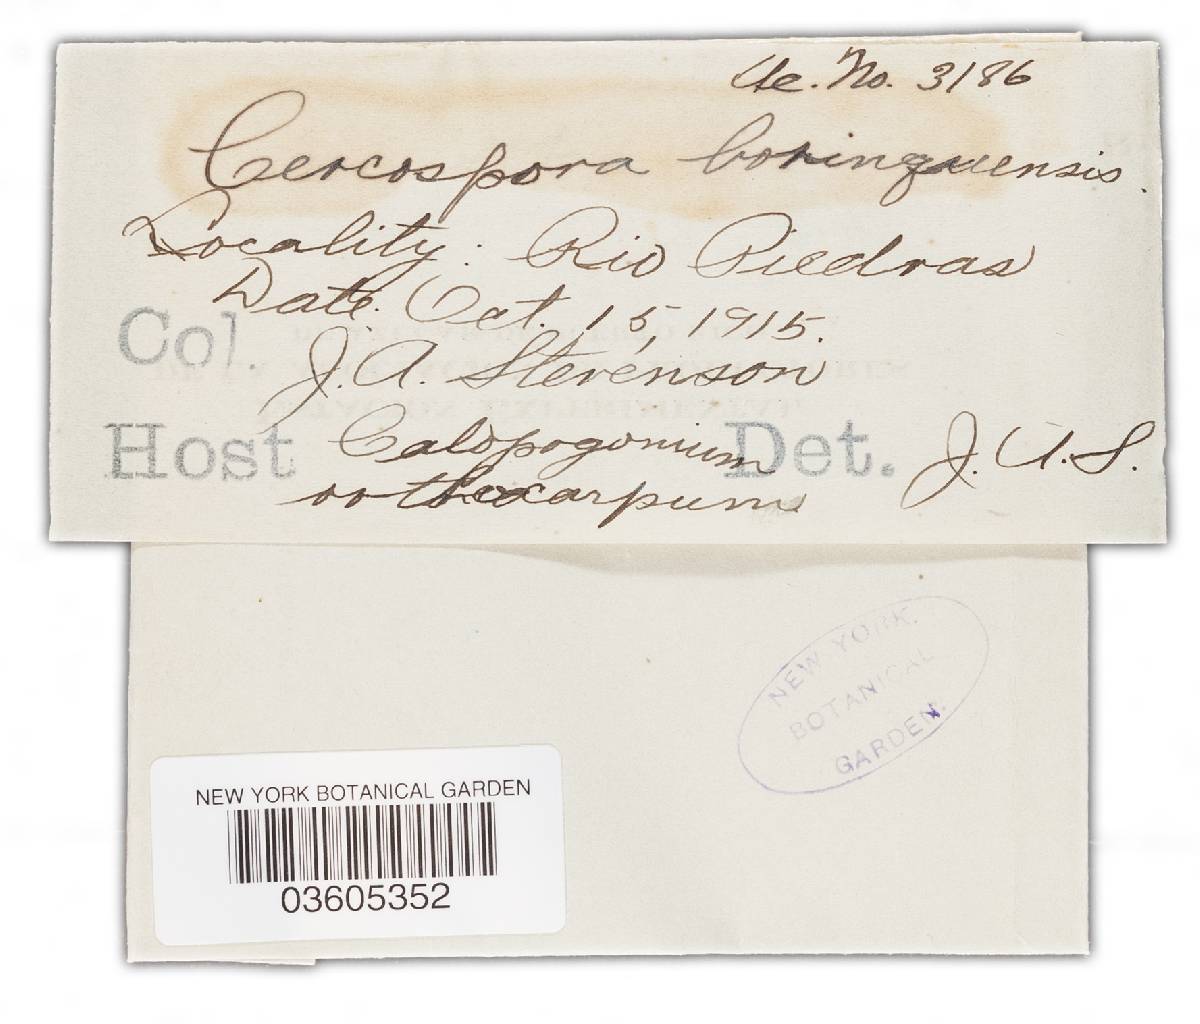 Ac. No. 3186
Cercospora borinquensis.
Locality: Rio Piedras
Date. Oct. 15, 1915.
Col. J. A. Stevenson
Host Calopogonium Det. J. A. S.
orthocarpum
NEW YORK
BOTANICAL
GARDEN.
NEW YORK BOTANICAL GARDEN
03605352